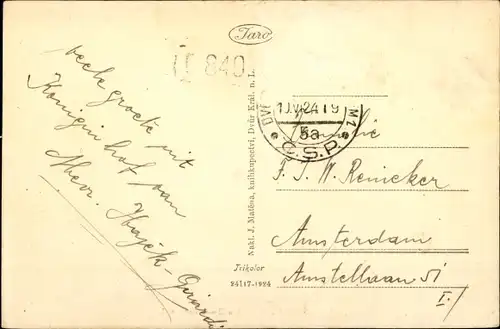 Taro
840
veele groete uit
Königinhof van
Mevr. Hajek-Girardi
Nakl. J. Matěna, knihkupectví, Dvůr Král. n. L.
Trikolor
24117-1924
10.VI.24 19
5a
Č.S.P.
Familie
F. J. W. Reineker
Amsterdam
Amstellaan 51
I.